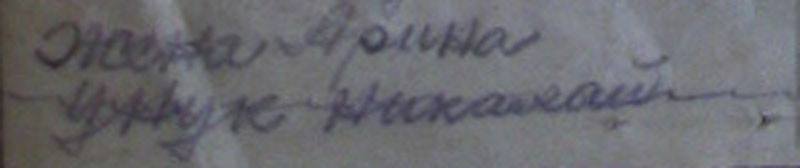 Жена Ярина
Унук Никалай